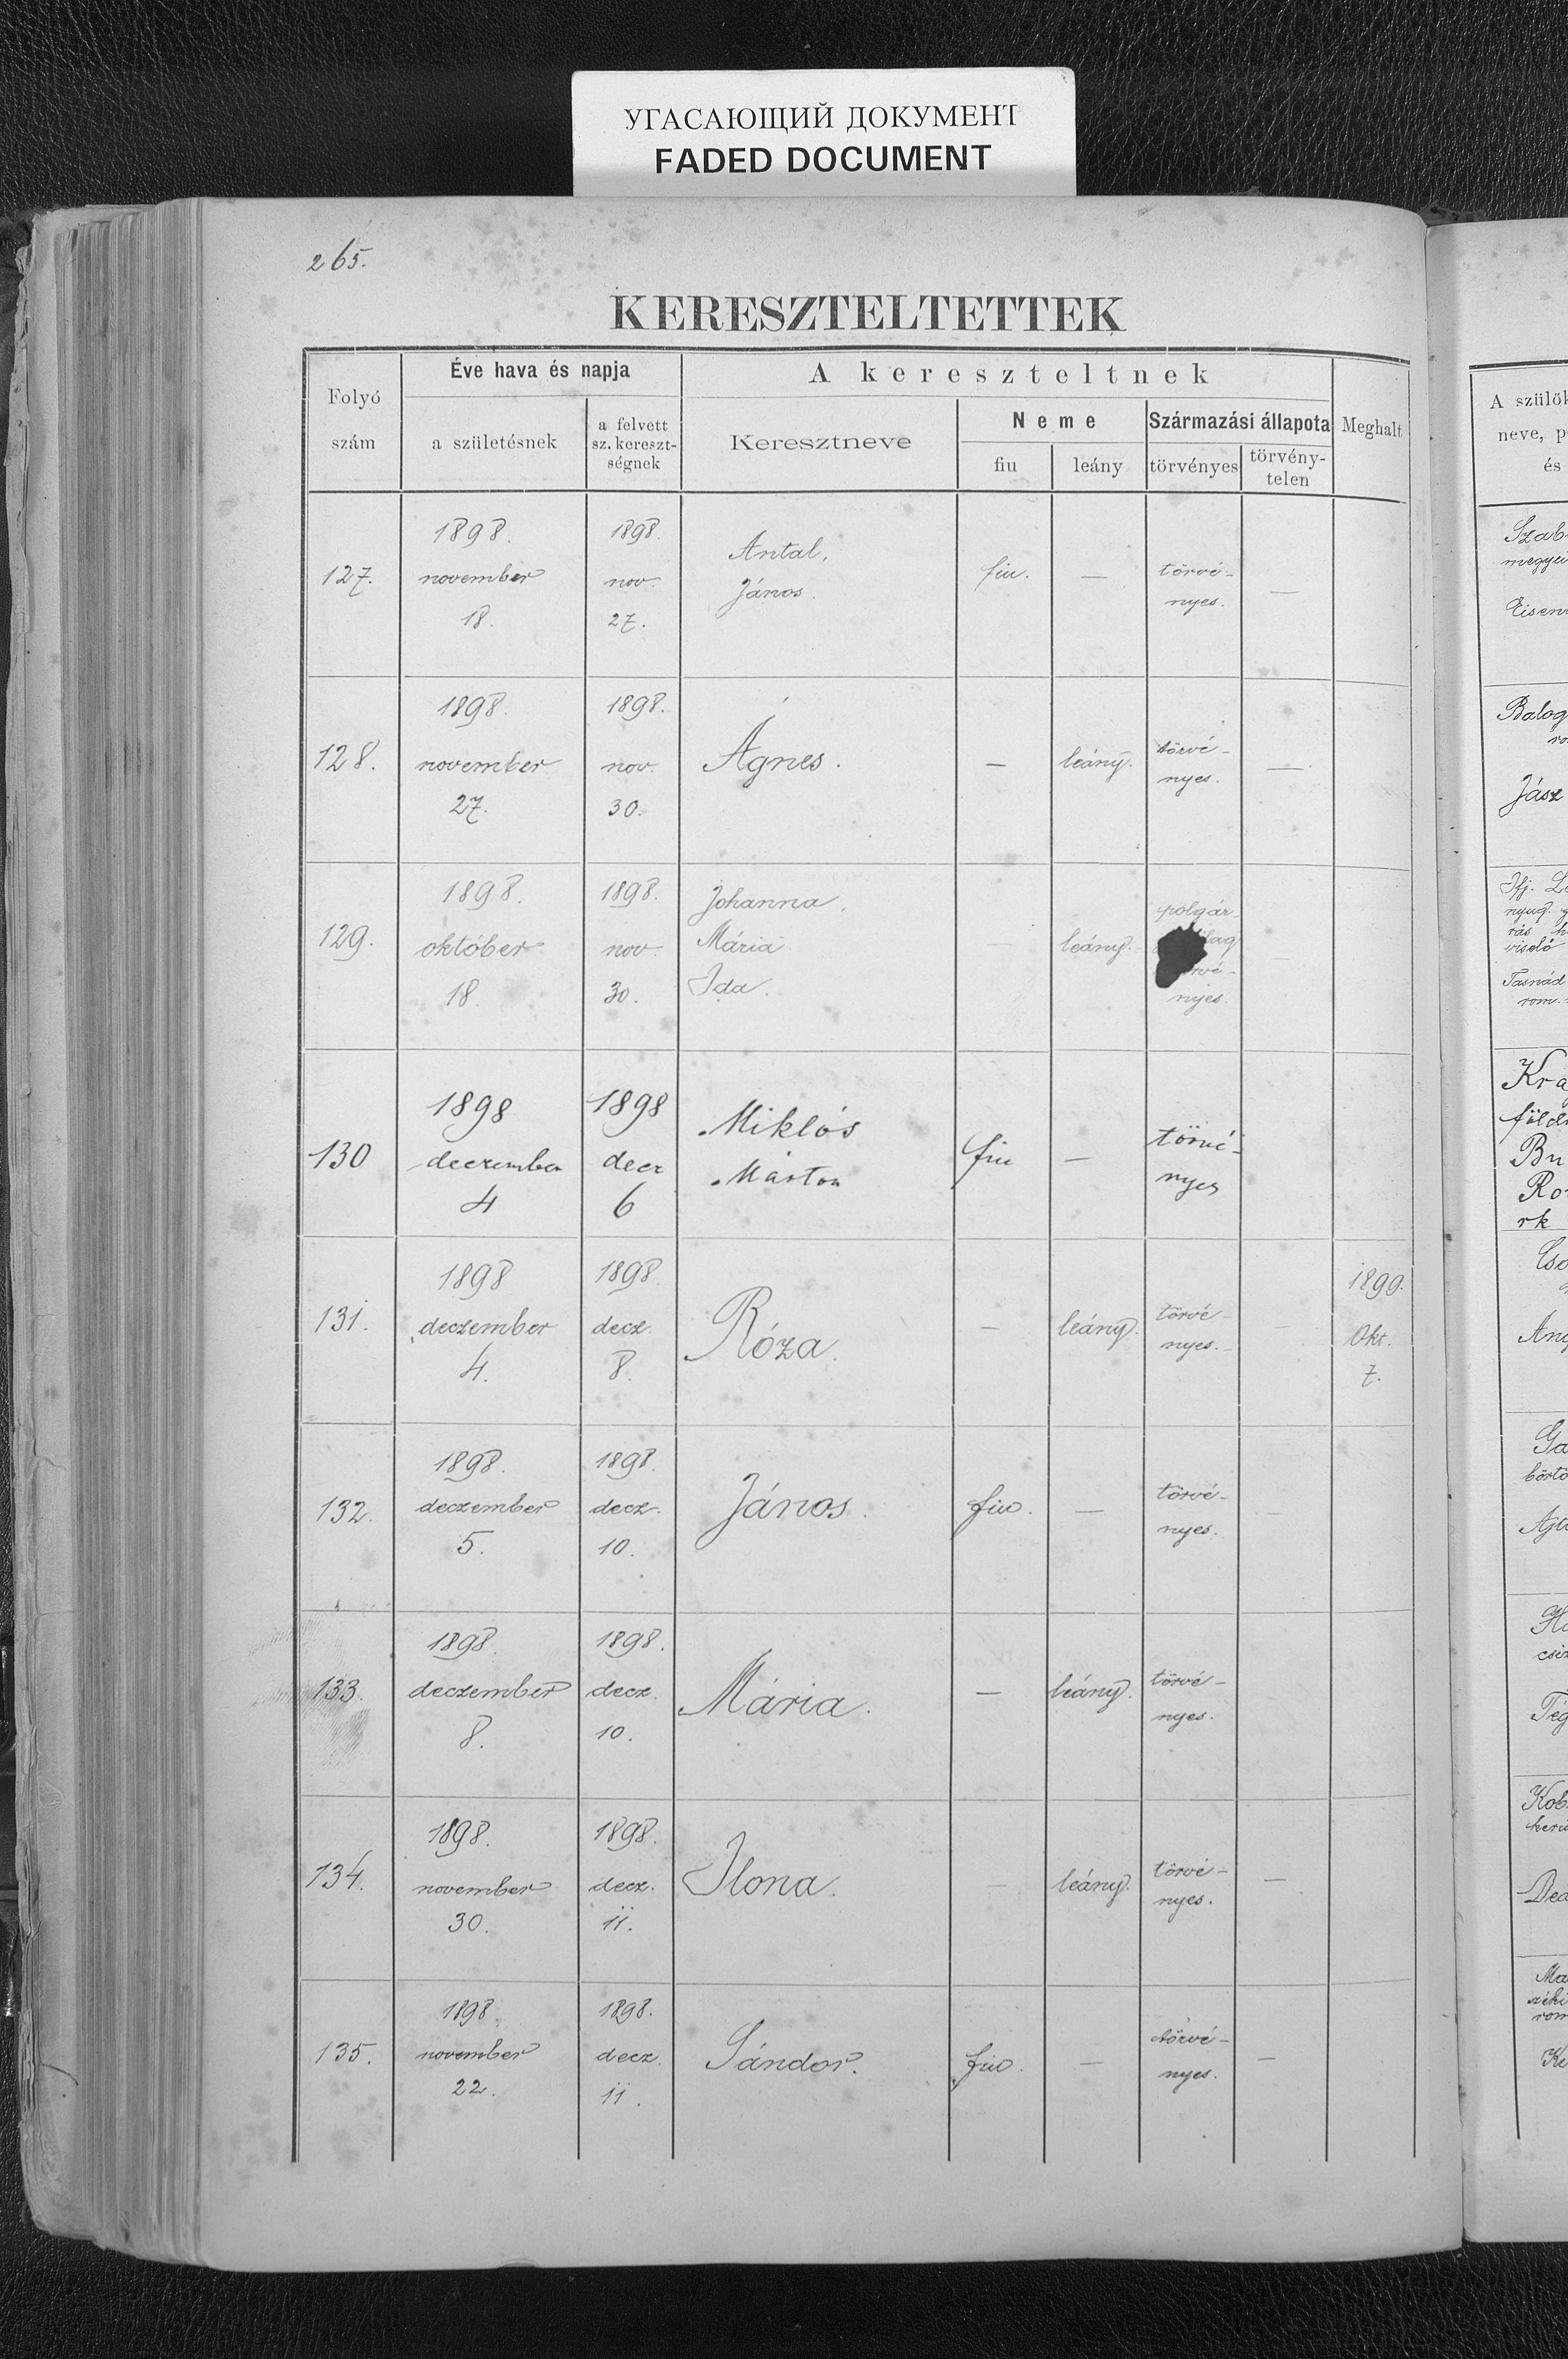 УГАСАЮЩИЙ ДОКУМЕНТ
FADED DOCUMENT
265.
KERESZTELTETTEK
Folyó szám
Éve hava és napja
a születésnek
a felvett sz. kereszt-ségnek
A kereszteltnek
Keresztneve
Neme
fiu
leány
Származási állapota
törvényes
törvény-telen
Meghalt
127.
1898.
november
18.
1898.
nov.
27.
Antal,
János.
fiu.
—
törvé-
nyes.
—
128.
1898.
november
27.
1898.
nov.
30.
Ágnes.
—
leány.
törvé-
nyes.
—
129.
1898.
október
18.
1898.
nov.
30.
Johanna,
Mária
Ida.
—
leány.
polgár-
nyes.
—
130
1898
deczember
4
1898
decz
6
Miklós
Márton
fiu
—
törvé-
nyes
131.
1898
deczember
4.
1898.
decz.
8.
Róza.
—
leány.
törvé-
nyes.
—
1899.
Okt.
7.
132.
1898.
deczember
5.
1898.
decz.
10.
János.
fiu.
—
törvé-
nyes.
—
133.
1898.
deczember
8.
1898.
decz.
10.
Mária.
—
leány.
törvé-
nyes.
134.
1898.
november
30.
1898.
decz.
11.
Ilona.
—
leány.
törvé-
nyes.
—
135.
1898.
november
22.
1898.
decz.
11.
Sándor.
fiu.
—
törvé-
nyes.
—
A szülők
neve, p
és
Szab
megyei
Eisen
Balog
Jász
Ifj. L
nyug.
tás
viselő
Tasnád
rom.
Kra
föld
Bu
Ro
rk
Ga
börtö
Ajt
csiz
Kob
Ma
rom
Ke